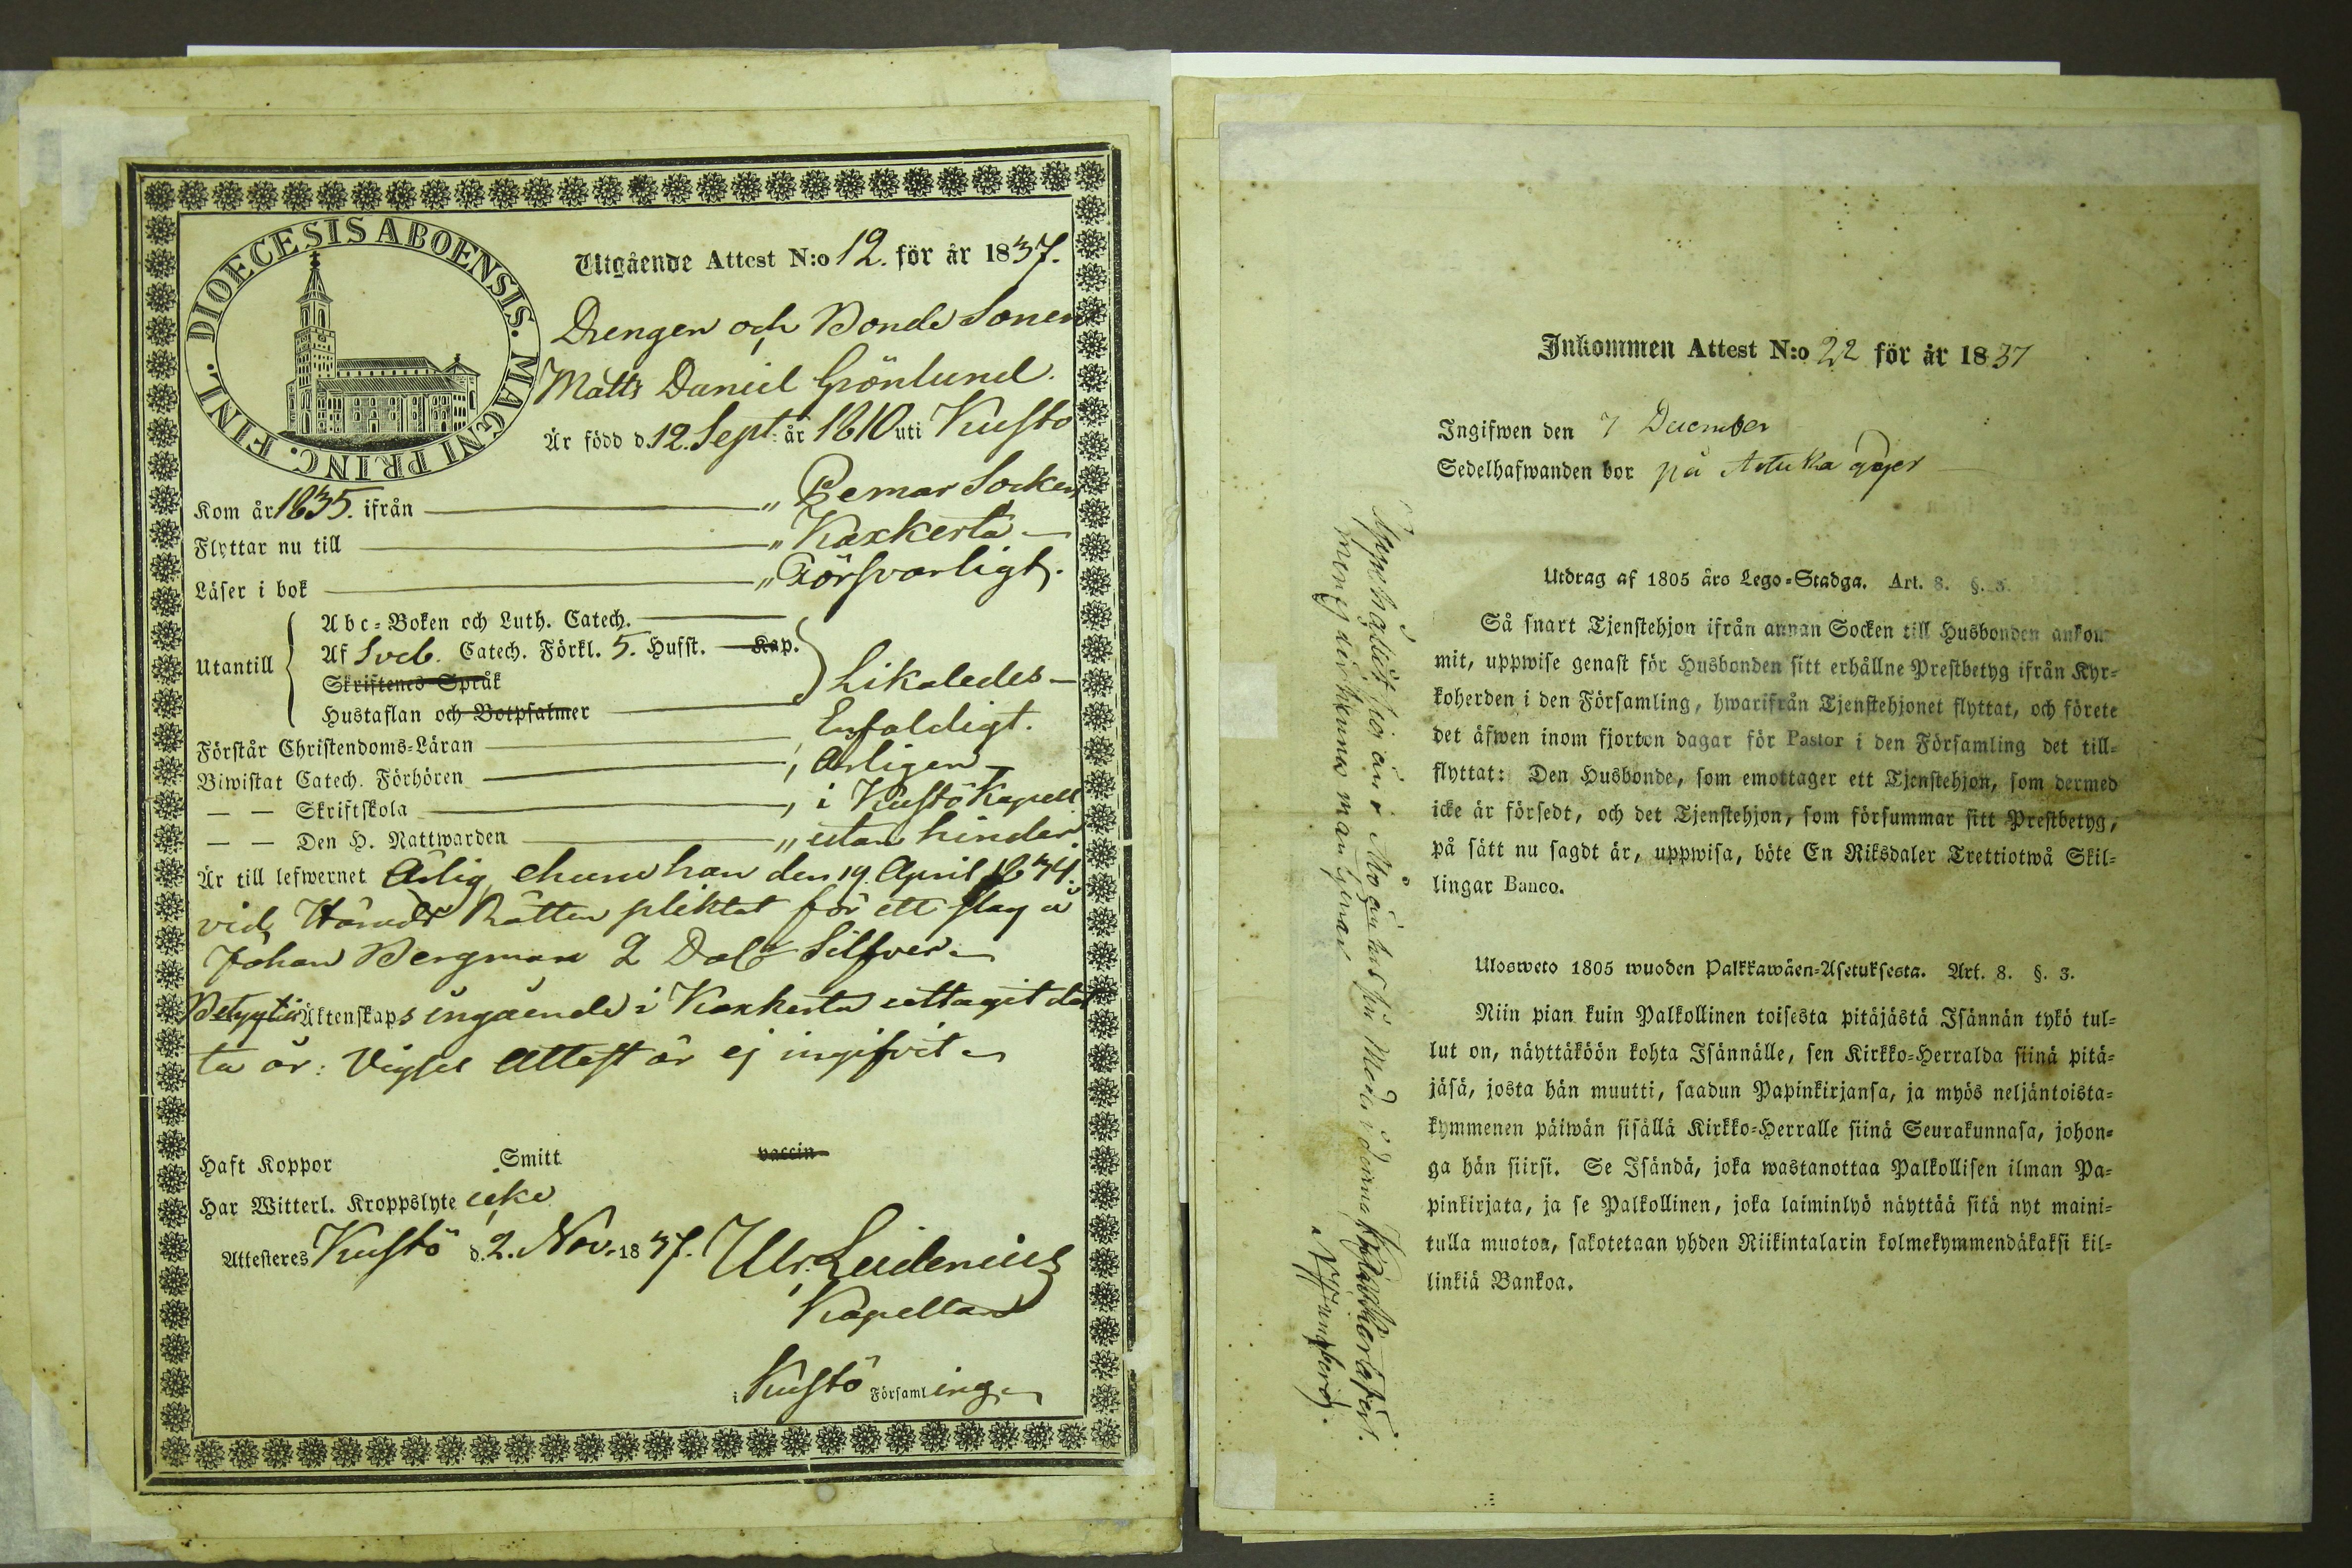 DIOECESIS ABOENSIS. MAGNI PRINC. FINL.
Utgående Attest N:o 12. för år 1837.
Drengen och Bonde Sonen
Matts Daniel Grönlund.
Är född d. 12. Sept: år 1810 uti Kustö
Kom år 1835. ifrån „ Pemar Socken
Flyttar nu till „ Kaxkerta
Läser i bok „ Försvarligt.
Utantill
Abc-Boken och Luth. Catech.
Af Sveb. Catech. Förkl. 5. Hufst. Kap.
Skriftenes Språk
Likaledes
Hustaflan och Botpsalmer
Förstår Christendoms-Läran Enfaldigt.
Biwistat Catech. Förhören , Årligen
— — Skriftskola , i Kustö Kapell
— — Den H. Nattwarden „ utan hinder
Är till lefwernet Ärlig, ehuru han den 19. April 1834.
vid Härads Rätten pliktat för ett slag å
Johan Bergman 2 Dal Silfver
Betyg til Äktenskaps ingående i Kaxkerta uttagit det
ta år: Vigsel Attest är ej ingifvit
Haft Koppor Smitt vaccin
Har Witterl. Kroppslyte icke
Attesteres Kustö d. 2. Nov. 1837. Ulr. Leidenius
Kapellan
i Kustö Församling
Inkommen Attest N:o 22 för år 1837
Ingifwen den 7 December
Sedelhafwanden bor på
Utdrag af 1805 års Lego-Stadga. Art. 8. §. 3.
Så snart Tjenstehjon ifrån annan Socken till Husbonden ankom-
mit, uppwise genast för Husbonden sitt erhållne Prestbetyg ifrån Kyr-
koherden i den Församling, hwarifrån Tjenstehjonet flyttat, och förete
det äfwen inom fjorton dagar för Pastor i den Församling det till-
flyttat: Den Husbonde, som emottager ett Tjenstehjon, som dermed
icke är försedt, och det Tjenstehjon, som försummar sitt Prestbetyg,
på sätt nu sagdt är, uppwisa, böte En Riksdaler Trettiotwå Skil-
lingar Banco.
Ulosweto 1805 wuoden Palkkawäen-Asetuksesta. Art. 8. §. 3.
Niin pian kuin Palkollinen toisesta pitäjästä Isännän tykö tul-
lut on, näyttäköön kohta Isännälle, sen Kirkko-Herralda siinä pitä-
jäsä, josta hän muutti, saadun Papinkirjansa, ja myös neljäntoista-
kymmenen päiwän sisällä Kirkko-Herralle siinä Seurakunnasa, johon-
ga hän siirsi. Se Isändä, joka wastanottaa Palkollisen ilman Pa-
pinkirjata, ja se Palkollinen, joka laiminlyö näyttää sitä nyt maini-
tulla muotoa, sakotetaan yhden Riikintalarin kolmekymmendäkaksi kil-
linkiä Bankoa.